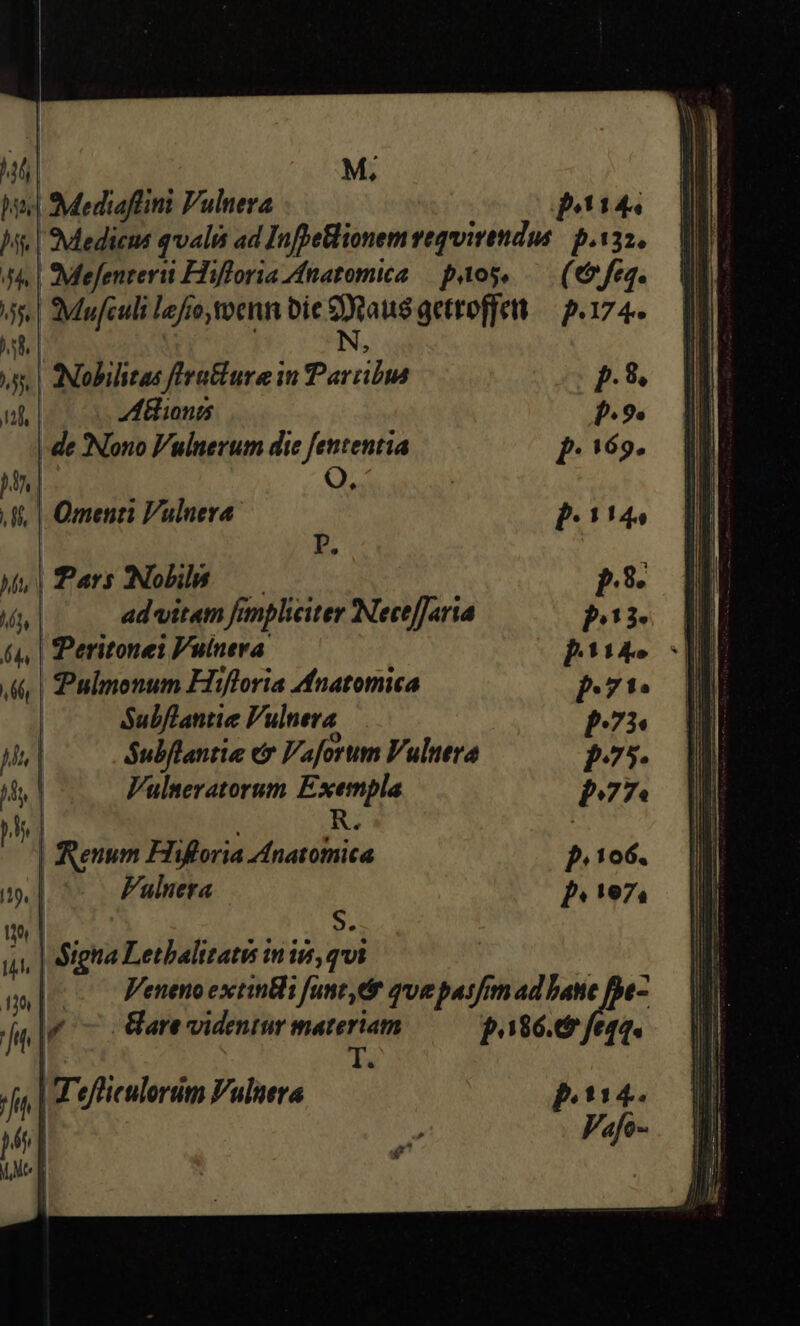 M.
Mediaſtini Vulnera p.114.
Medicus qvalis ad Inſpectionem reqvirendus p.132.
Meſenterii Hiſtoria Anatomica p.105. (& ſeq.
Muſculi leſio, wenn die Maus getroffen p.174.
N.
Nobilitas ſtructuræ in Partibus p.8.
Actionis p.9.
de Nono Vulnerum die ſententia p.169.
O.
Omenti Vulnera p.114.
P.
Pars Nobilis p.8.
ad vitam ſimpliciter Neceſſaria p.13.
Peritonei Vulnera p.114.
Pulmonum Hiſtoria Anatomica p.71.
Subſtantiæ Vulnera p.73.
Subſtantiæ & Vaſorum Vulnera p.75.
Vulneratorum Exempla p.77.
R.
Renum Hiſtoria Anatomica p.106.
Vulnera p.107.
S.
Signa Lethalitatis in iis, qvi
Veneno extincti ſunt, & quæ pasſim ad hanc ſpe-
ctare videntur materiam p.186. & ſeqq.
T.
Teſticulorum Vulnera p.114.
Vaſo-